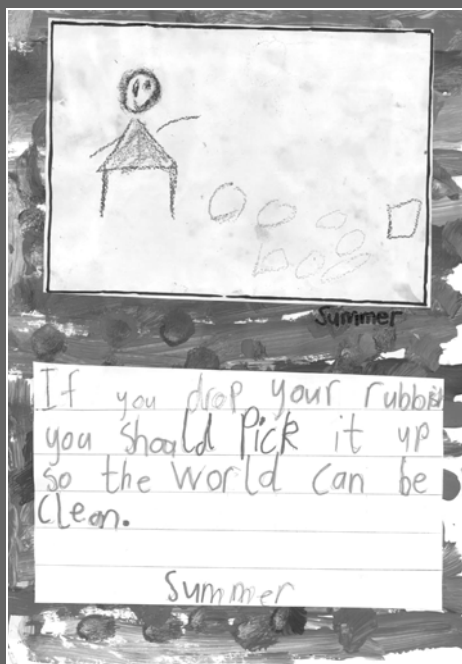 Summer
If you drop your rubbish
you should Pick it up
so the World can be
Clean.
Summer